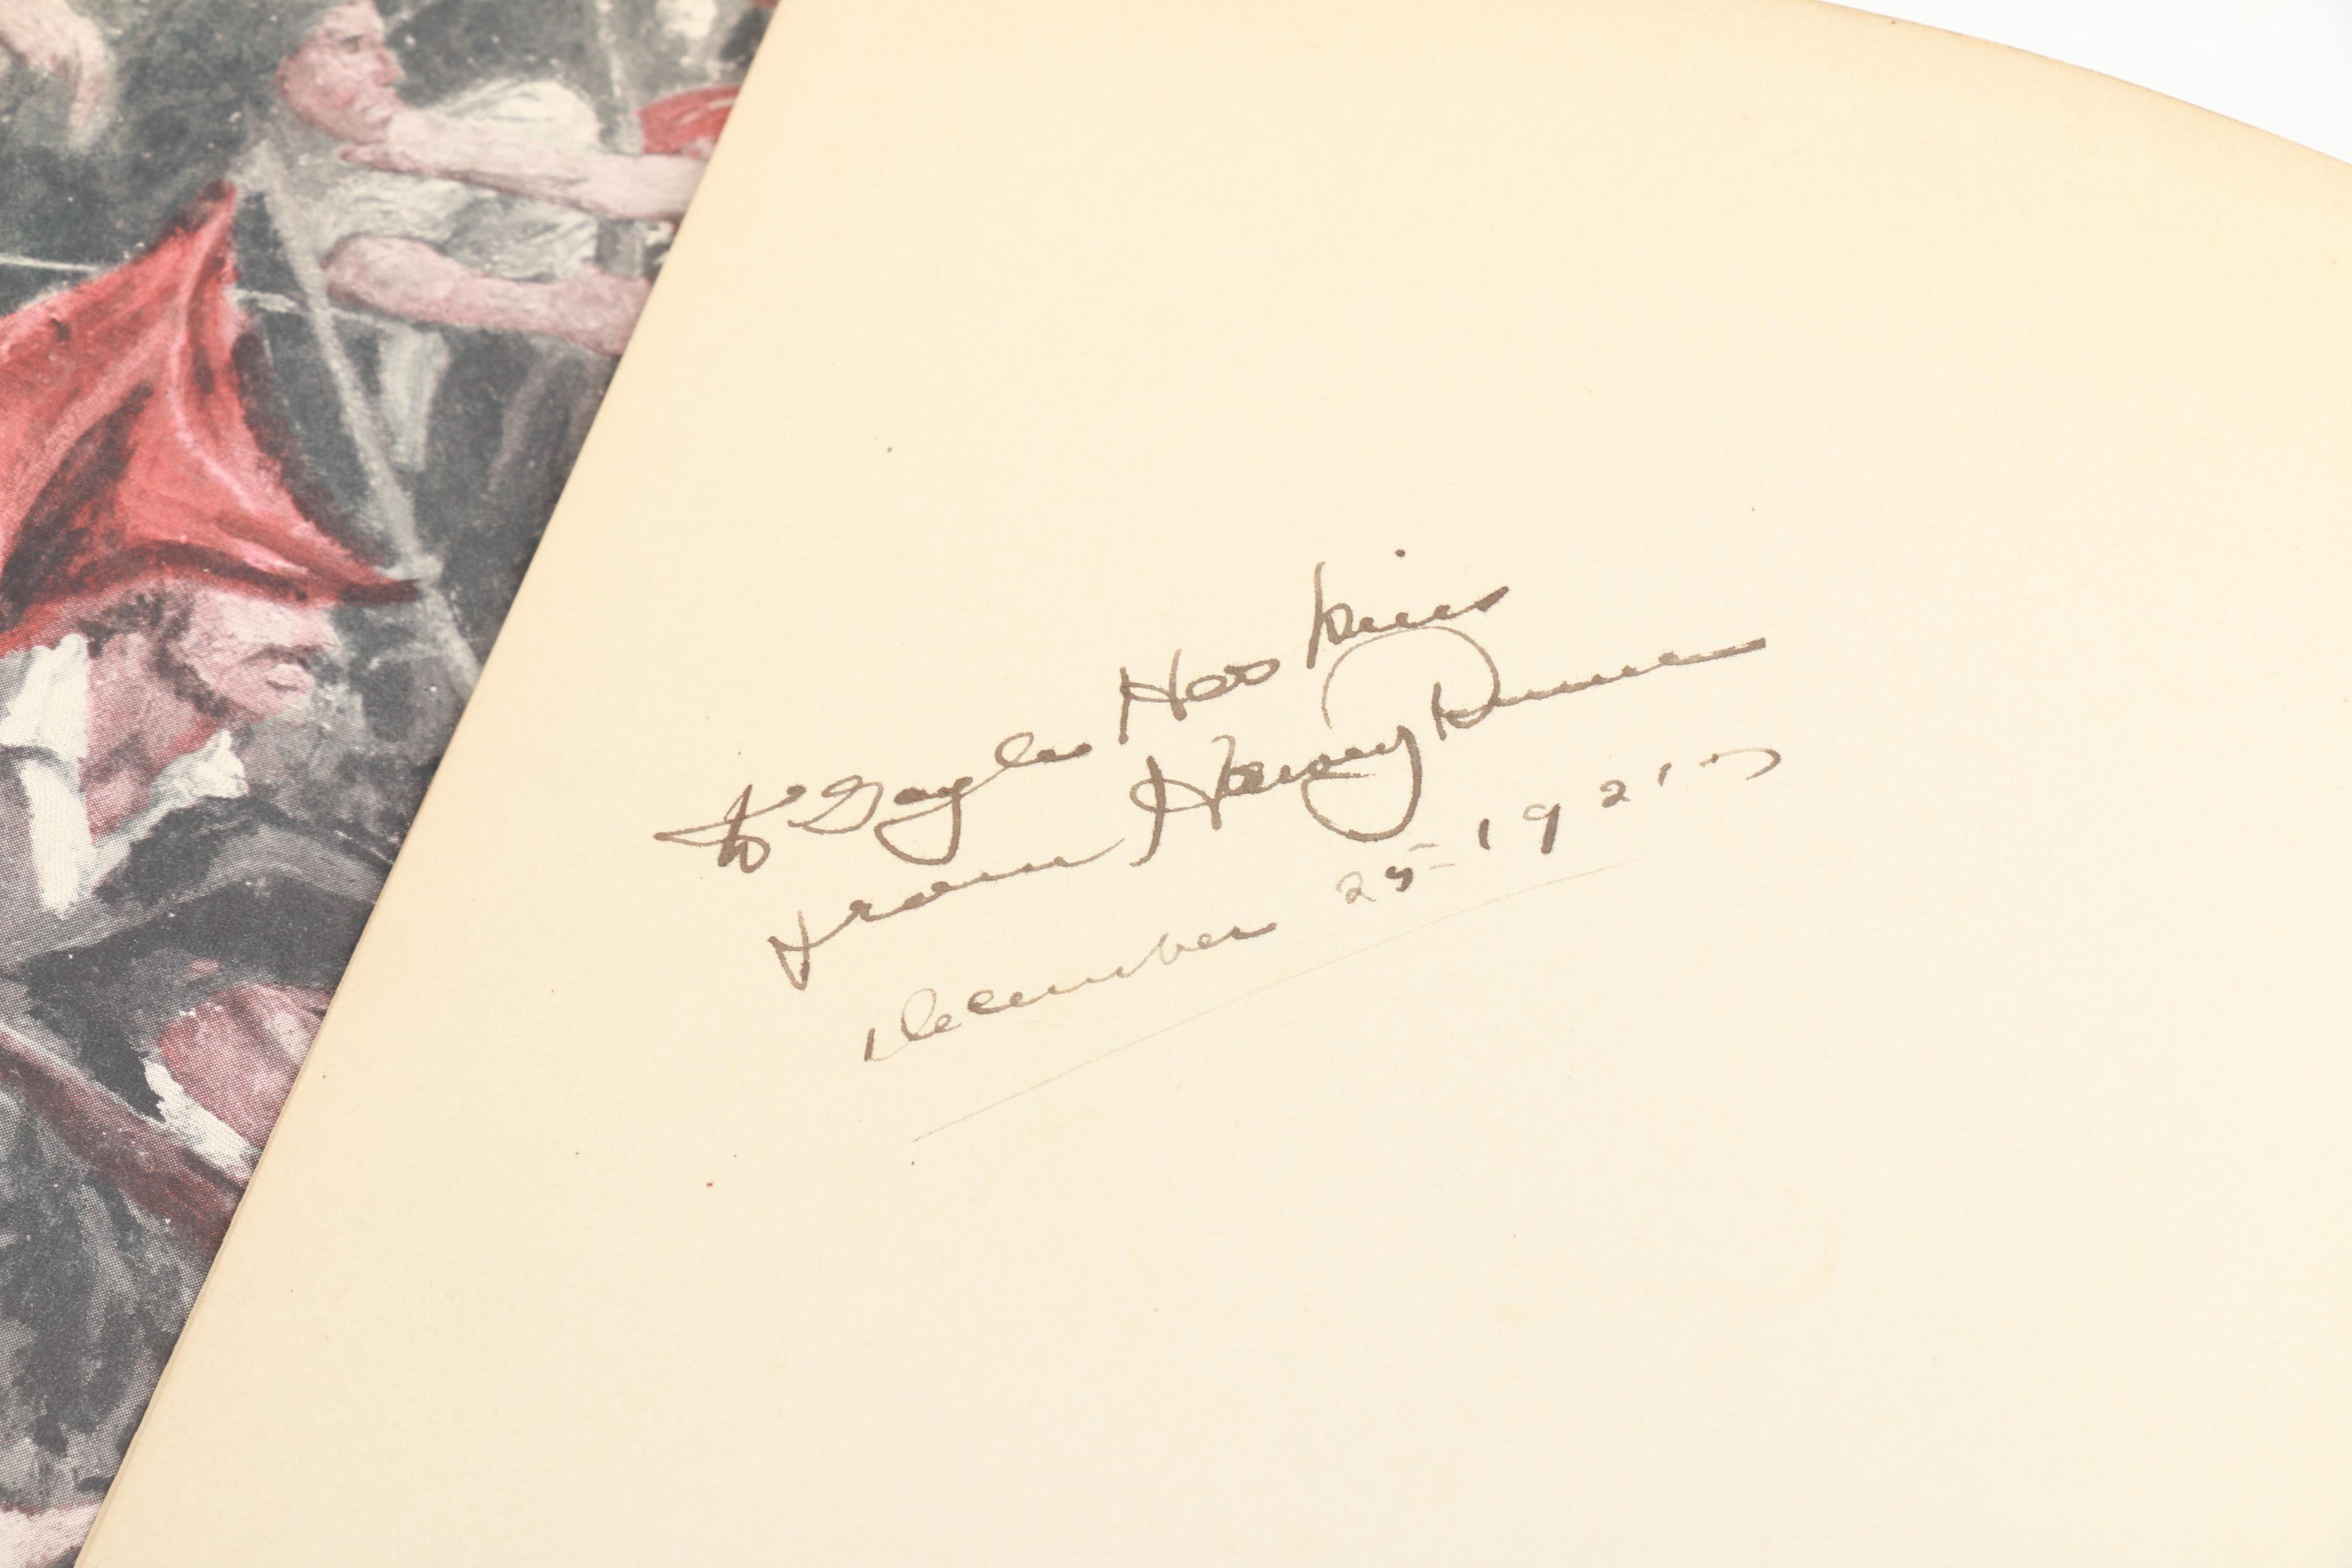 To Gayle Hoskins
from Harvey Dunn
December 25 - 1921